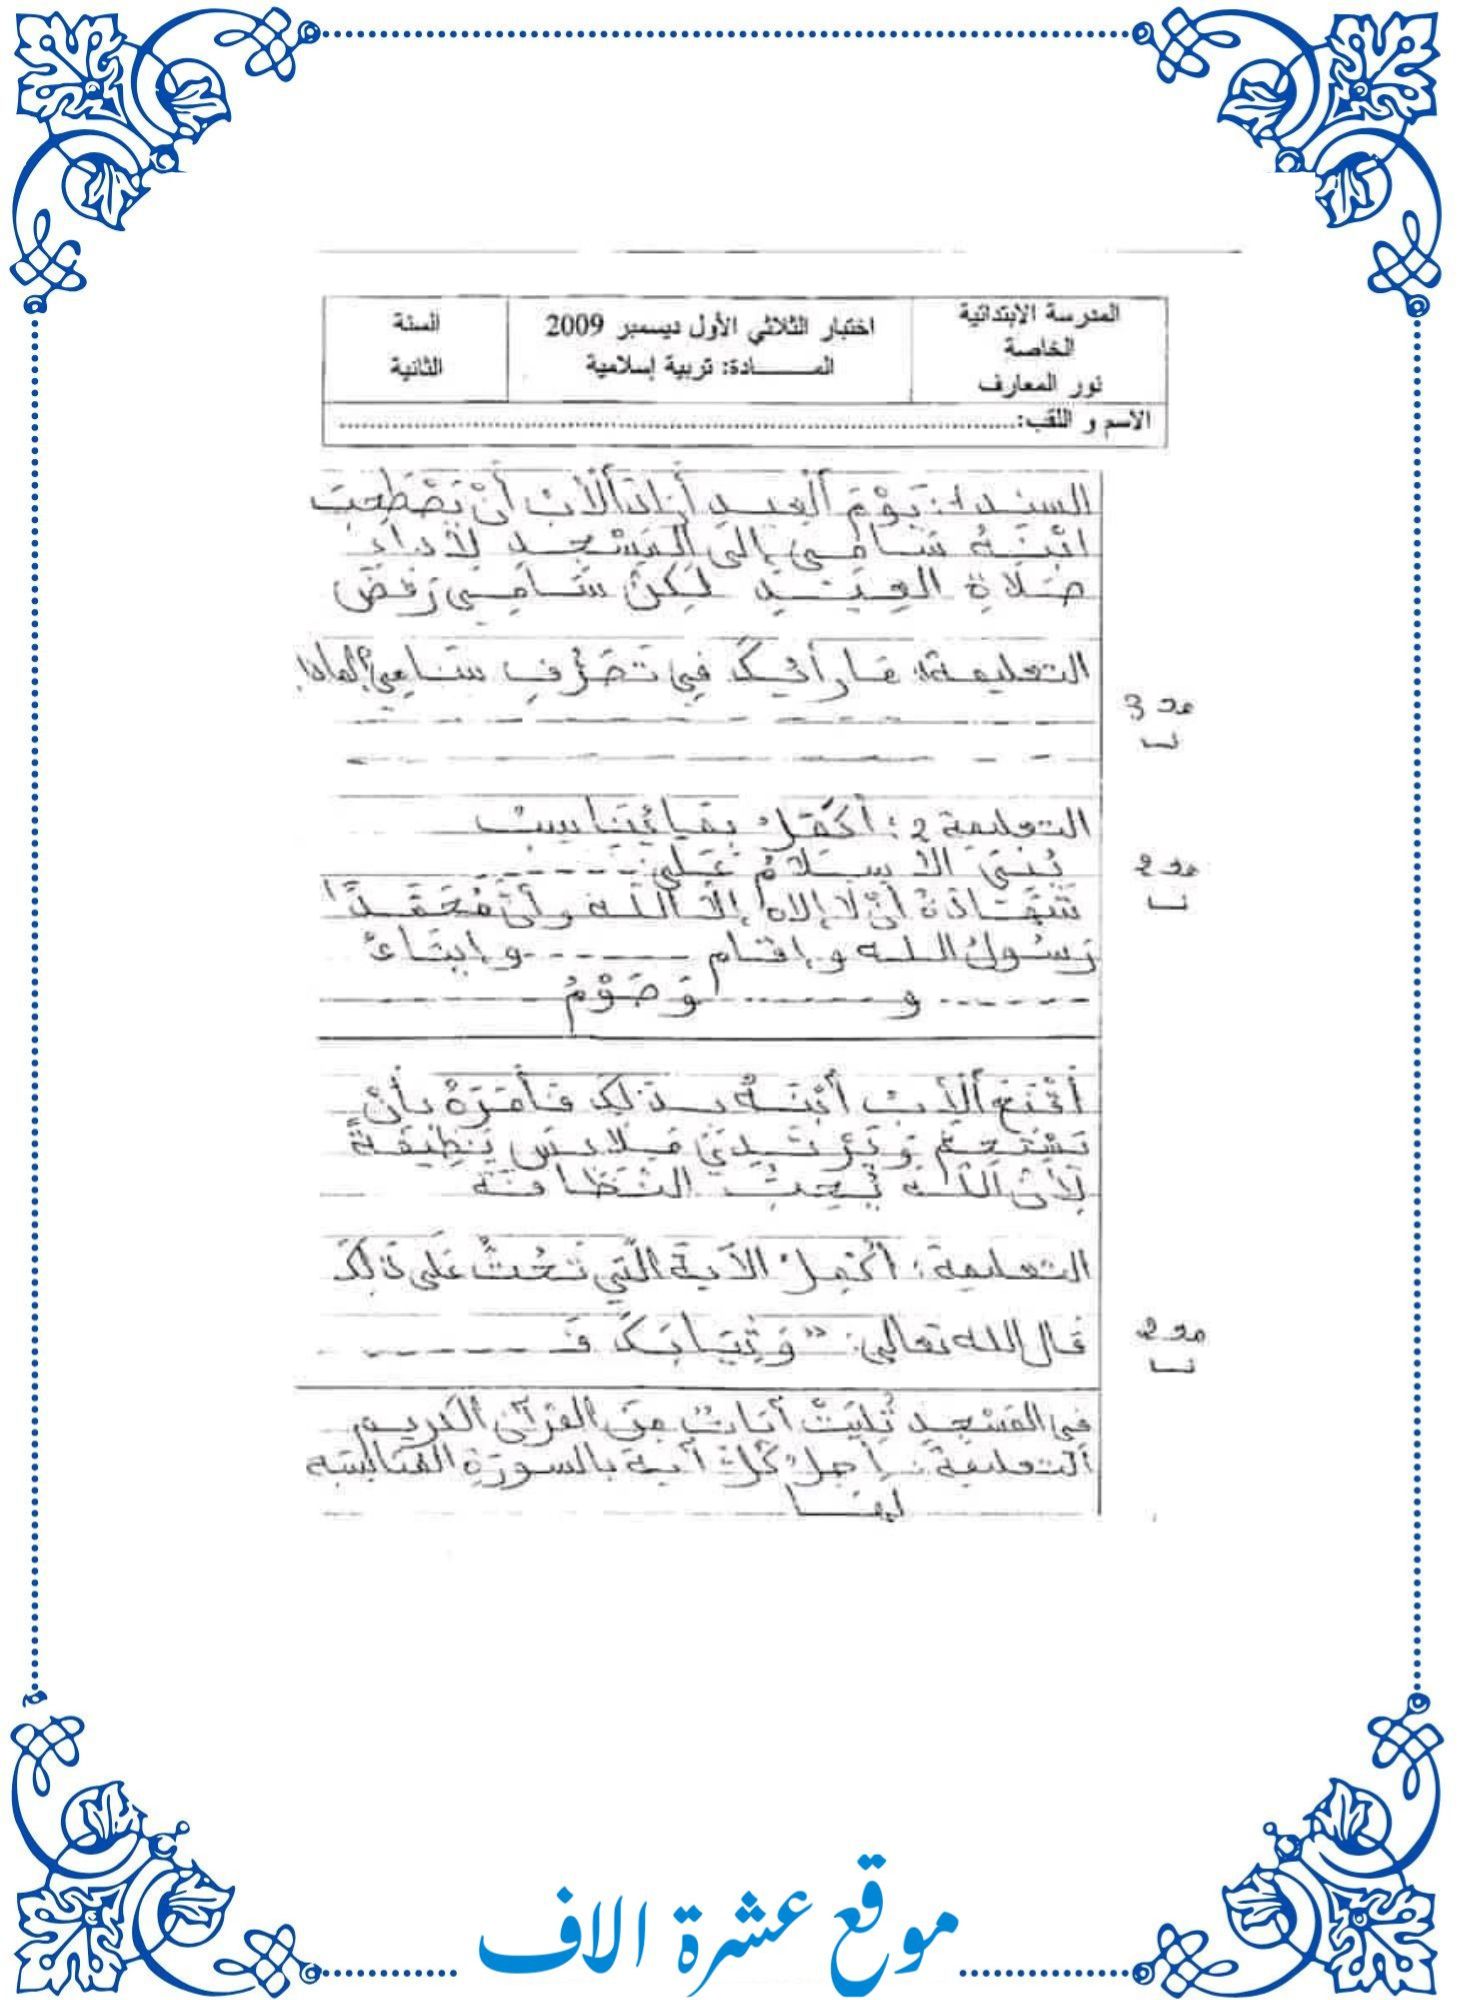 المدرسة الابتدائية
الخاصة
نور المعارف
اختبار الثلاثي الأول ديسمبر 2009
المـــــادة: تربية إسلامية
السنة
الثانية
الاسم و اللقب:
السند 1: يَوْمَ الْعِيدِ أَرَادَ الْأَبُ أَنْ يَصْطَحِبَ
ابْنَهُ سَامِي إلَى المَسْجِدِ لِأَدَاءِ
صَلَاةِ العِيدِ لَكِنَّ سَامِي رَفَضَ
التعليمة 1: مَا رَأْيُكَ فِي تَصَرُّفِ سَامِي؟ لماذا
مع 3
التعليمة 2: أُكْمِلُ بِمَا يُنَاسِبُ
بُنِيَ الإسْلَامُ عَلَى
مع 2
شَهَادَةُ أَنْ لَا إلاه إلا اللّه وأنّ مُحَمَّدًا
رَسُولُ اللـه و إقام ------ و إيتَاءُ
------ و ------ وَصَوْمُ
أَقْنَعَ الْأَبُ ابْنَهُ بِذَلِكَ فَأَمَرَهُ بِأَنْ
يَسْتَحِمَّ وَيَرْتَدِيَ مَلَابِسَ نَظِيفَةً
لِأَنَّ اللَّهَ يُحِبُّ النَّظَافَةَ
التعليمة: أُكْمِلُ الآيَةَ الَّتِي تَحُثُّ عَلَى ذَلِكَ
قال الله تعالى: " وَثِيَابَكَ فَ ------
مع 2
في المَسْجِدِ تُلِيَتْ آيَاتٌ مِنَ القرْآنِ الكريم
التعليمة: أَصِلُ كُلَّ آيَة بالسورَةِ المناسِبَة
لهَا
موقع عشرة الاف